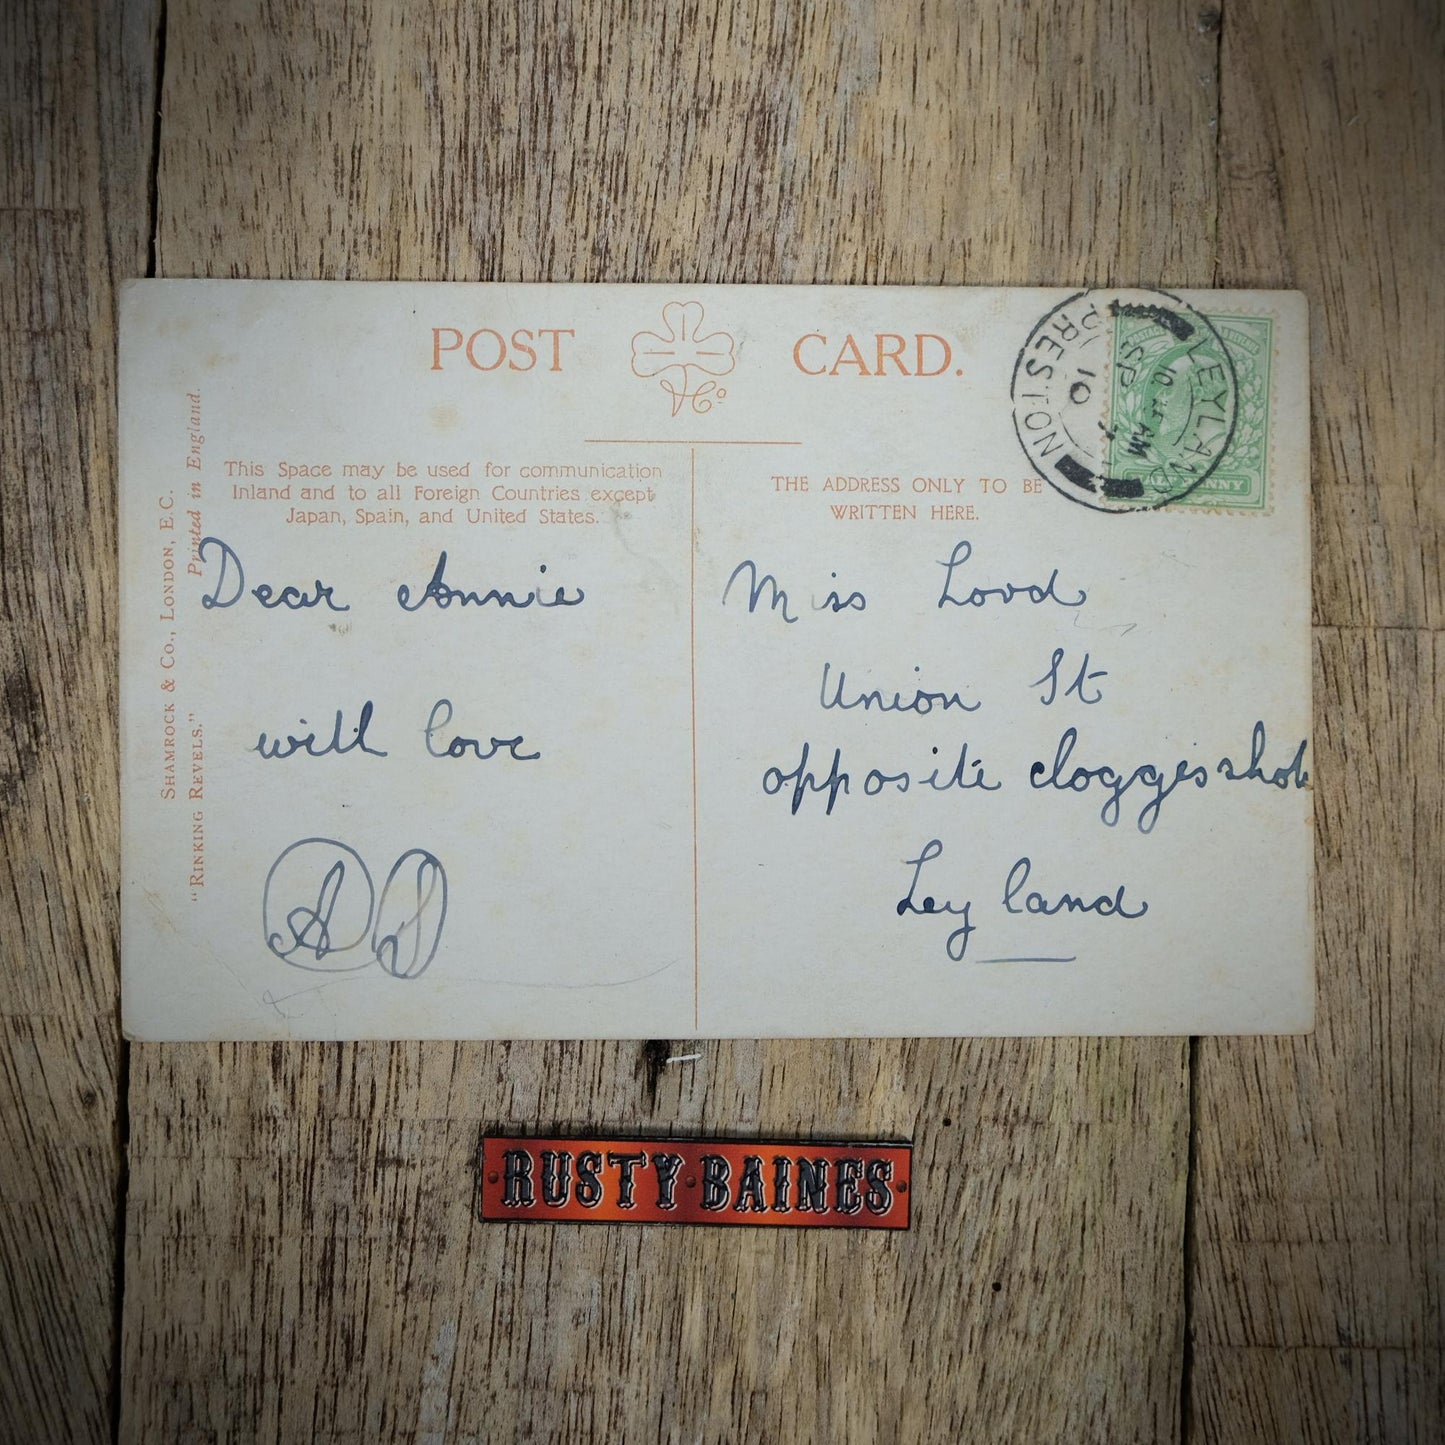 POST CARD.
& Co
This Space may be used for communication
Inland and to all Foreign Countries except
Japan, Spain, and United States.
THE ADDRESS ONLY TO BE
WRITTEN HERE.
SHAMROCK & Co., LONDON, E.C.
"RINKING REVELS."
Printed in England.
Dear Annie
with love
AS
Miss Lord
Union St
opposite cloggesshop
Leyland
LEYLAND
PRESTON
10 AM
SP
10
RUSTY·BAINES